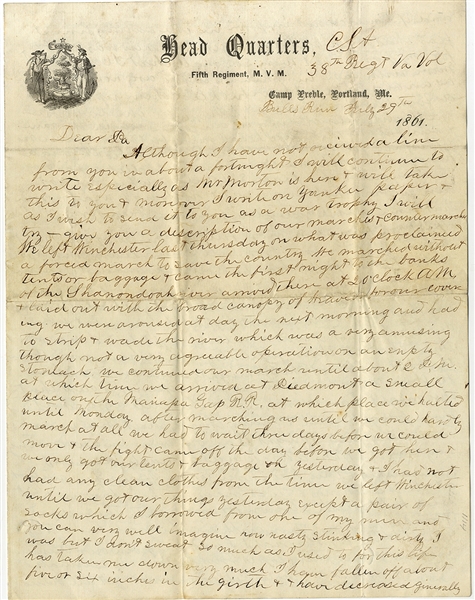 Head Quarters, C.S.A
Fifth Regiment, M. V. M. 38th Regt Va Vol
Camp Preble, Portland, Me.
Bulls Run July 29th
1861.
Dear Pa
Although I have not received a line
from you in about a fortnight I will continue to
write especially as Mr Morton is here & will take
this to you & moreover I write on Yankee paper &
as I wish to send it to you as a war trophy I will
try – give you a description of our marches & countermarches
We left Winchester last thursday on what was proclaimed
a forced march to save the country. We marched without
tents or baggage & came the first night to the banks
of the Shanondoah river arrived there at 2 o'clock A.M.
& laid out with the broad canopy of Heaven for our cover
ing we were aroused at day the next morning and had
to strip & wade the river which was a very amusing
though not a very agreeable operation on an empty
stomach we continued our march until about 2 P.M.
at which time we arrived at Piedmont a small
place on the Manassa Gap R.R. at which place we halted
until Monday after marching us until we could hardly
march at all we had to wait three days before we could
move & the fight came off the day before we got here &
we only got our tents & baggage yesterday & I had not
had any clean clothes from the time we left Winchester
until we got our things yesterday except a pair of
socks which I borrowed from one of my men and
you can very well imagine how nasty stinking & dirty I
was but I don't sweat so much as I used to for this life
has taken me down very much I have fallen off about
five or six inches in the girth & have decreased generally